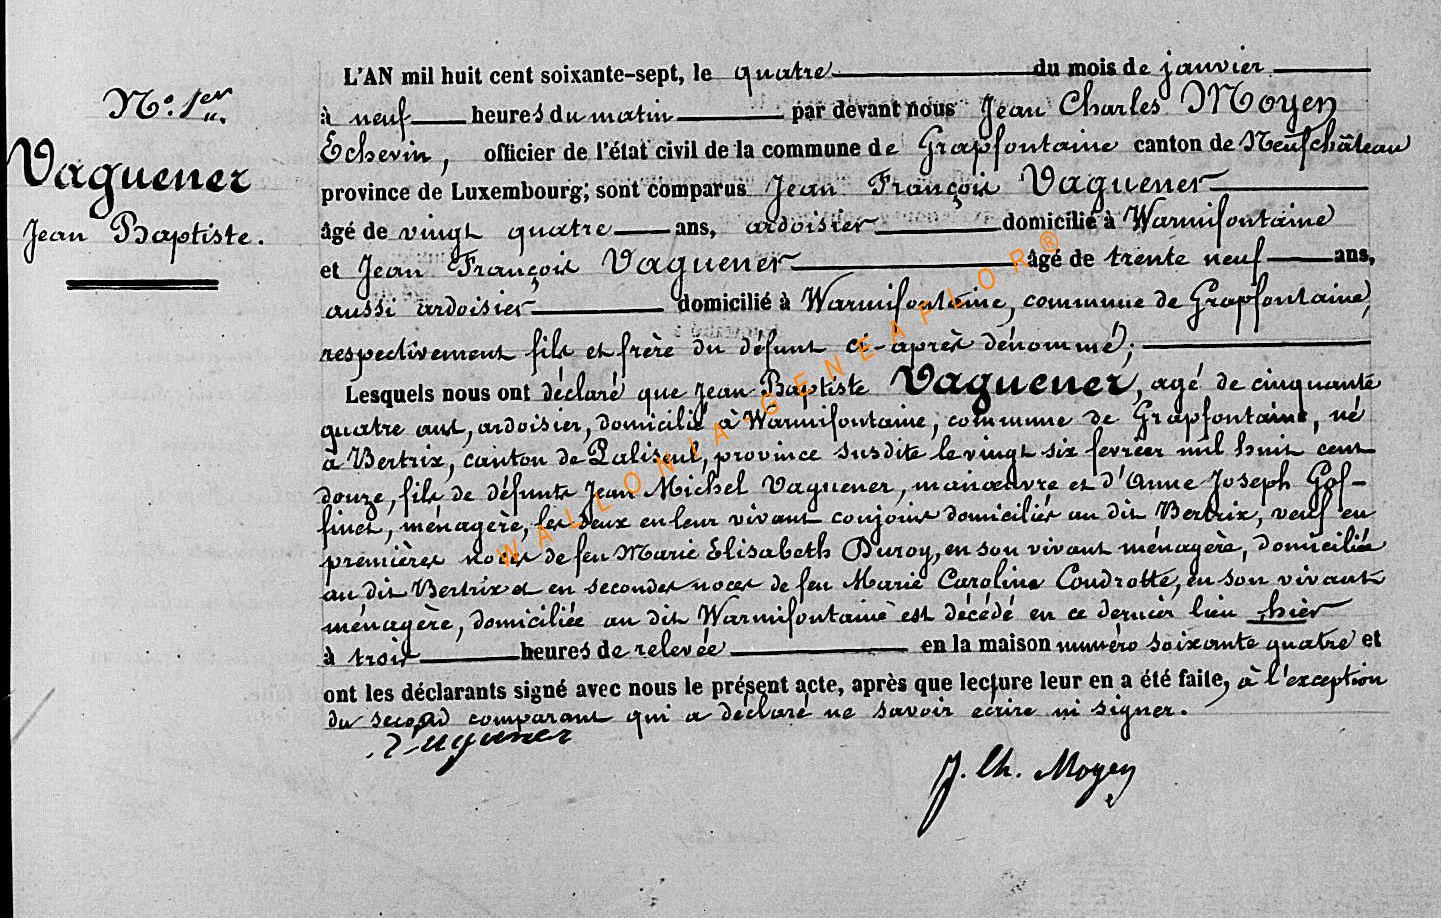 N.° 1er
Vaguener
Jean Baptiste.
L'AN mil huit cent soixante-sept, le quatre du mois de janvier
à neuf heures du matin par devant nous Jean Charles Moyen
Echevin, officier de l'état civil de la commune de Grapfontaine canton de Neufchâteau
province de Luxembourg; sont comparus Jean François Vaguener
âgé de vingt quatre ans, ardoisier domicilié à Warmifontaine
et Jean François Vaguener âgé de trente neuf ans,
aussi ardoisier domicilié à Warmifontaine, commune de Grapfontaine,
respectivement fils et frère du défunt ci-après dénommé;
Lesquels nous ont déclaré que Jean Baptiste Vaguener, agé de cinquante
quatre ans, ardoisier, domicilié à Warmifontaine, commune de Grapfontaine, né
à Bertrix, canton de Paliseul, province susdite le vingt six fevrier mil huit cent
douze, fils de défunts Jean Michel Vaguener, manœuvre et d'Anne Joseph Gof-
finet, ménagère, les deux en leur vivant conjoins domiciliés au dit Bertrix, veuf en
premières noces de feu Marie Elisabeth Duroy, en son vivant ménagère, domiciliée
au dit Bertrix et en secondes noces de feu Marie Caroline Coudrotte, en son vivant
ménagère, domiciliée au dit Warmifontaine est décédé en ce dernier lieu hier
à trois heures de relevée en la maison numéro soixante quatre et
ont les déclarants signé avec nous le présent acte, après que lecture leur en a été faite, à l'exception
du second comparant qui a déclaré ne savoir écrire ni signer.
Vaguener
J. Ch. Moyen
WALLONIA-GENEAFLOR®